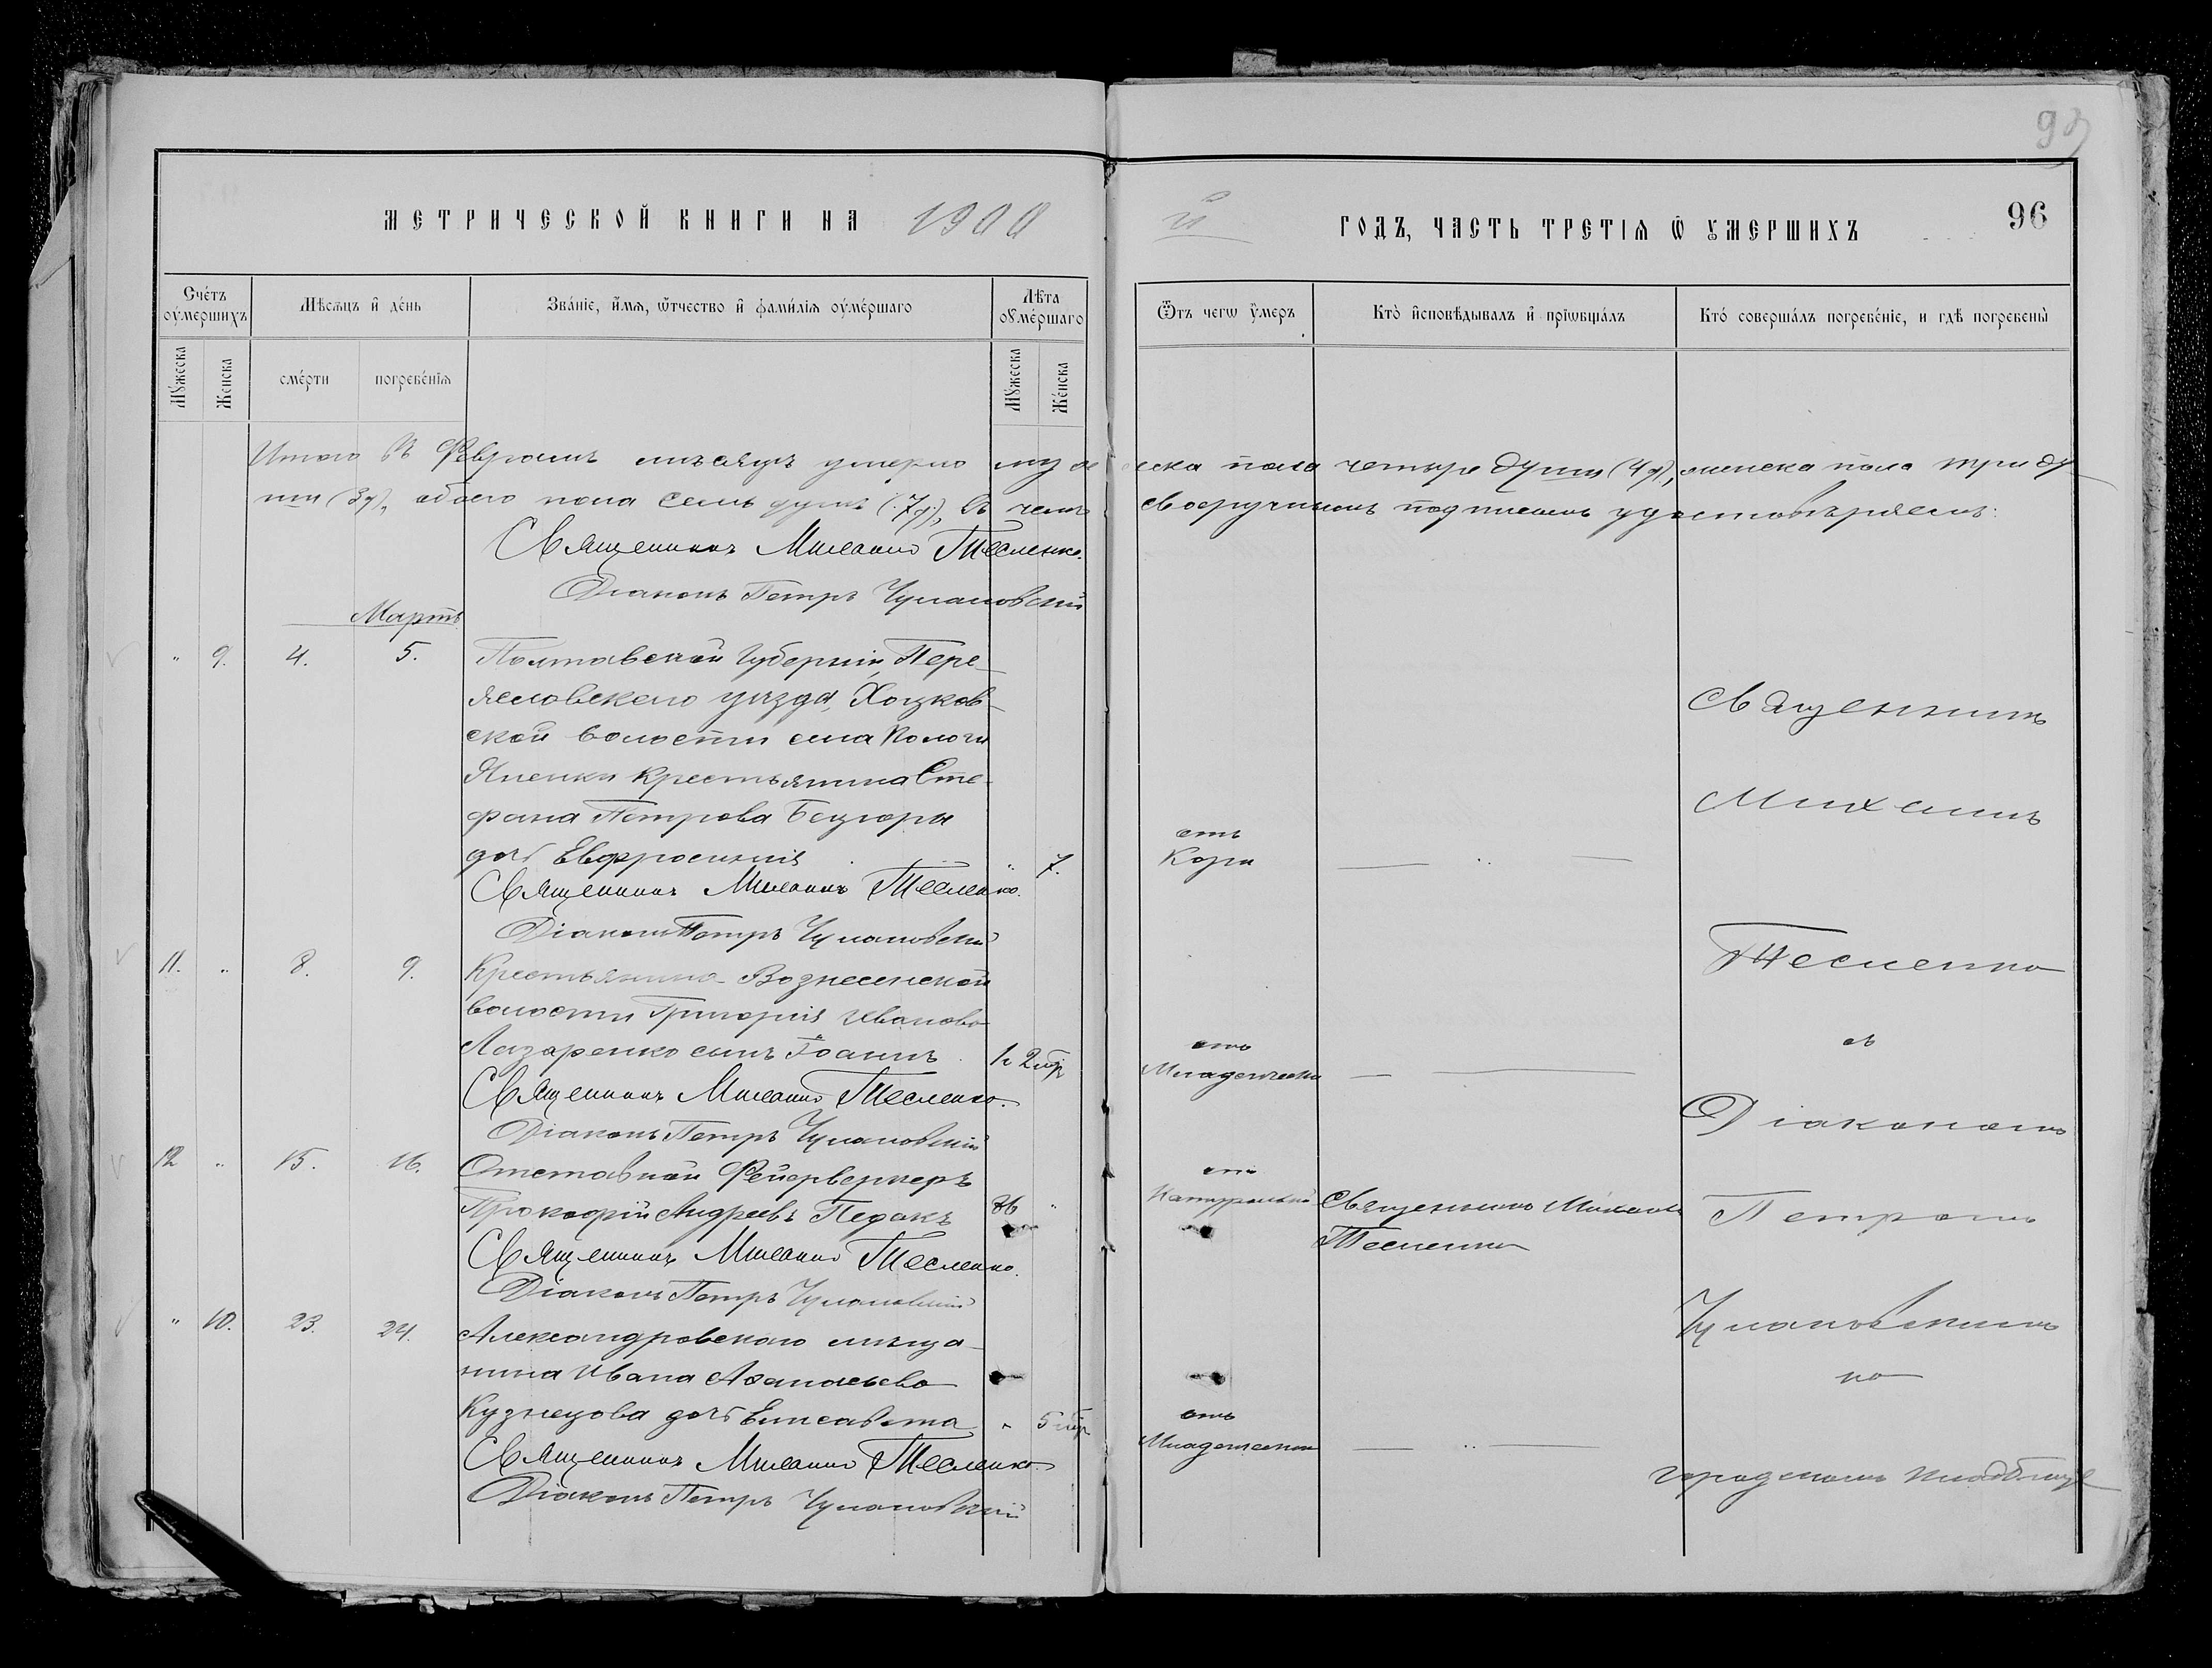 93
МЕТРИЧЕСКОЙ КНИГИ НА 1900 й ГОДЪ, ЧАСТЬ ТРЕТІѦ Ѿ УМЕРШИХЪ
96
Счетъ оумершихъ
Мѣсѧцъ и день
Званіе, имѧ, ѿтчество и фамиліѧ оумершаго
Лѣта оумершаго
Ѿтъ чегѡ умеръ
Кто исповѣдывалъ и пріѡбщалъ
Кто совершалъ погребеніе, и гдѣ погребены
Мужеска
Женска
смерти
погребеніѧ
Мужеска
Женска
Итого въ Февралѣ мѣсяцѣ умерло мужеска пола четыре души (4 д), женска пола три ду
ши (3 д), обоего пола семь душъ (7 д), въ чемъ своеручнымъ подписомъ удостовѣряемъ:
Священникъ Михаилъ Тесленко.
Діаконъ Петръ Чулановскій
Мартъ
" 9. 4. 5. Полтавской Губерніи, Пере-
яславскаго уѣзда, Хоцков-
ской волости села
крестьянина Сте-
фана Петрова
дочь Евфросинія " 7. отъ
Кори — " —
Священникъ Михаилъ Тесленко.
Діаконъ Петръ Чулановскій
11. " 8. 9. Крестьянина Вознесенской
волости Григорія Иванова
Лазаренко сынъ Іоаннъ 1 г. 2 мѣс. отъ
Младенческой — —
Священникъ Михаилъ Тесленко.
Діаконъ Петръ Чулановскій
12 " 15. 16. Отставной Фейерверкеръ
Прокофій Андреевъ Педакъ 86 " отъ
Натуральной Священникъ Михаилъ
Тесленко
Священникъ Михаилъ Тесленко.
Діаконъ Петръ Чулановскій
" 10. 23. 24. Александровскаго мѣща-
нина Ивана Аѳанасьева
Кузнецова дочь Елисавета " 5 мѣс. отъ
Младенческой — " —
Священникъ Михаилъ Тесленко.
Діаконъ Петръ Чулановскій
Священникъ
Михаилъ
Тесленко
съ
Діакономъ
Петромъ
Чулановскимъ
на
городскомъ кладбищѣ